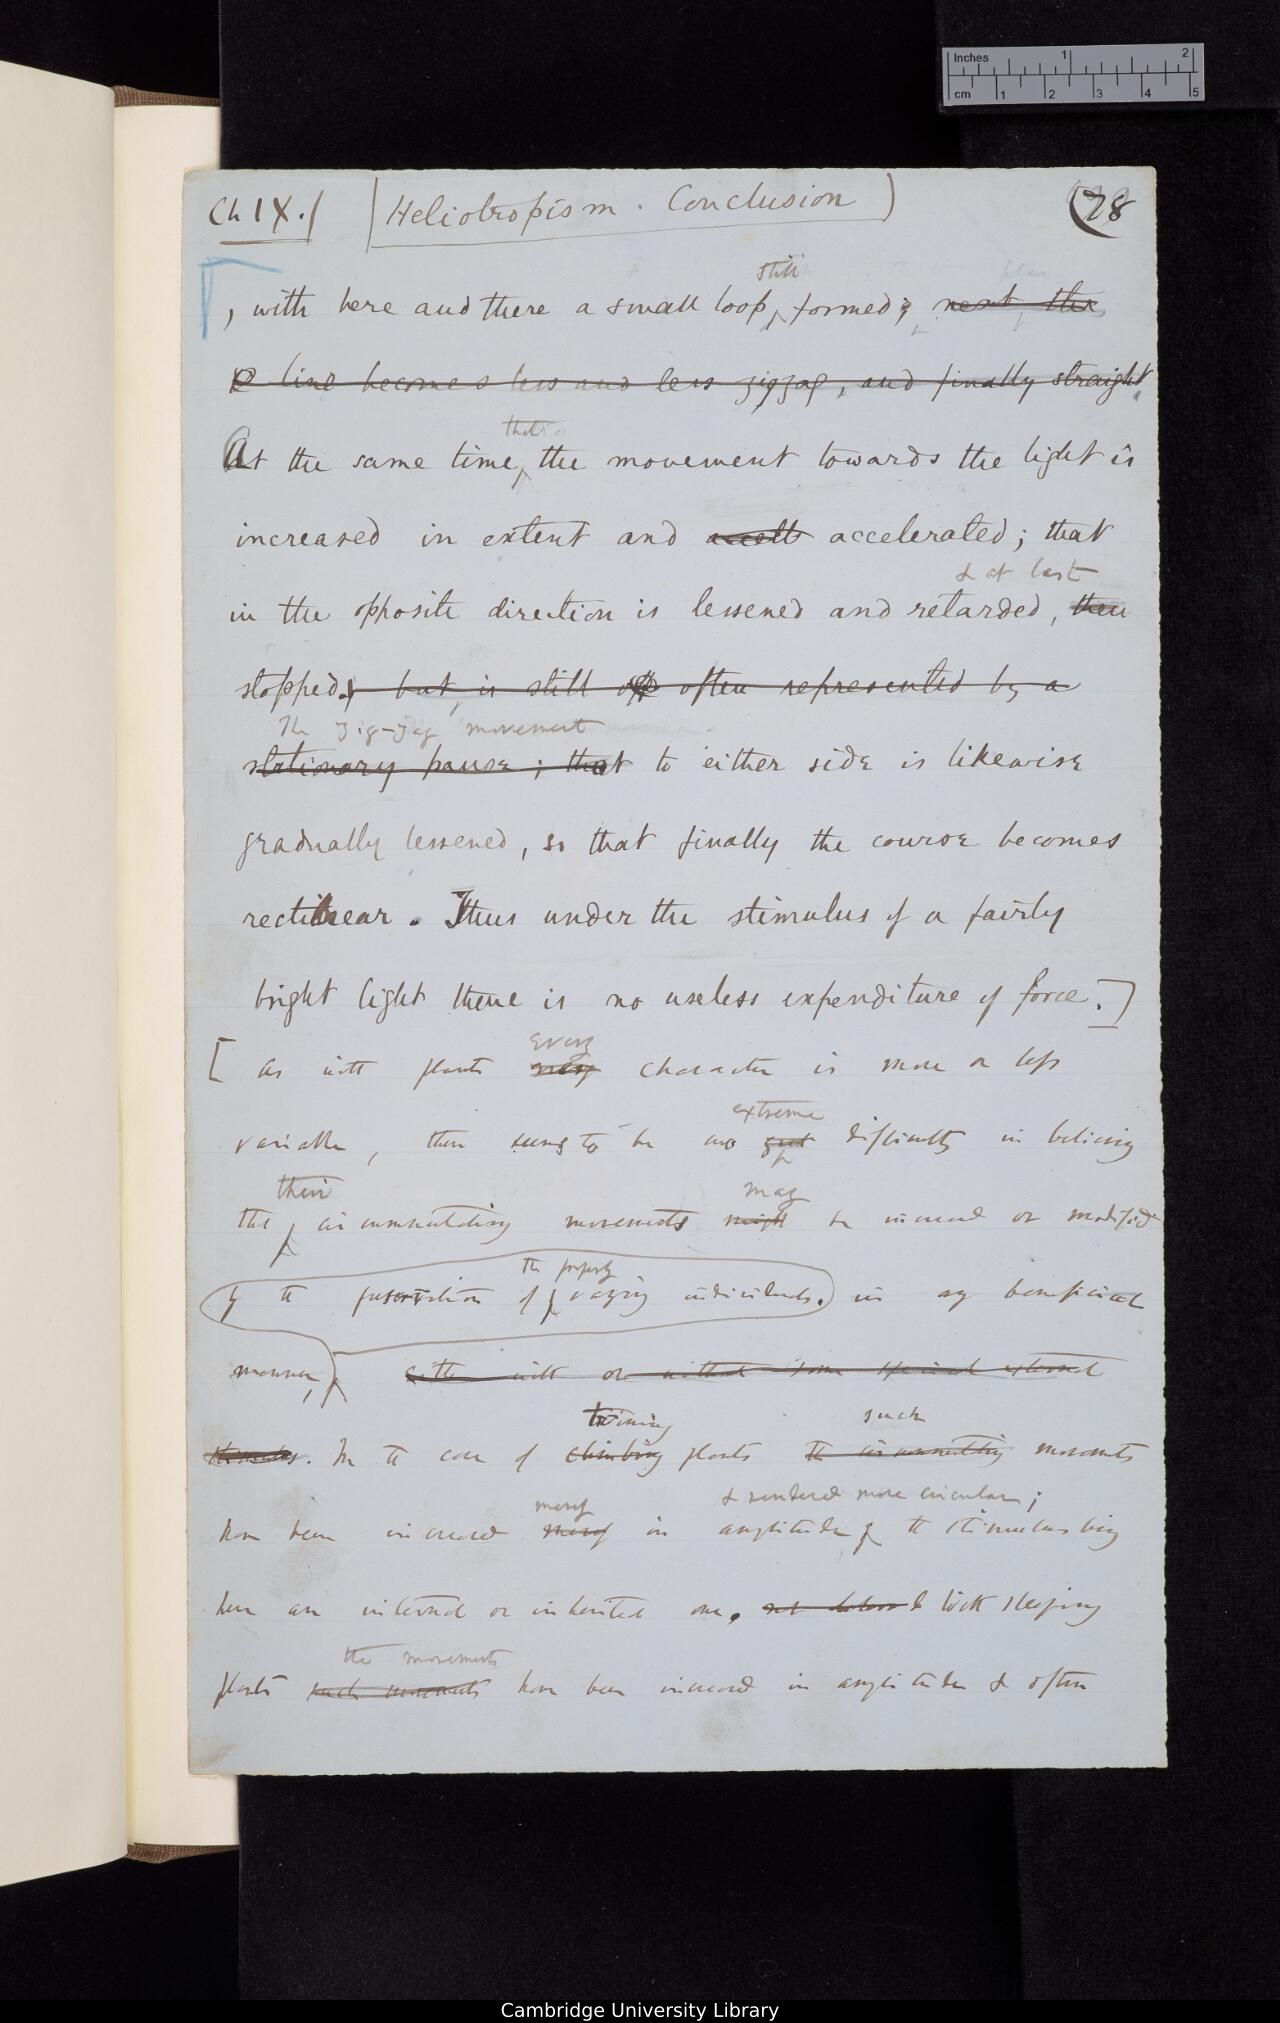 Inches 1 2
cm 1 2 3 4 5
Ch IX. (Heliotropism. Conclusion) 78
still
, with here and there a small loop, formed; next the
line becomes less and less zigzag, and finally straight.
that of
At the same time, the movement towards the light is
increased in extent and accelerated; that
& at last
in the opposite direction is lessened and retarded, then
stopped. but is still often represented by a
The zig-zag movement
stationary pause; that to either side is likewise
gradually lessened, so that finally the course becomes
rectilinear. Thus under the stimulus of a fairly
bright light there is no useless expenditure of force.]
every
[As with plants character is more or less
extreme
variable, there seems to be no great difficulty in believing
their
may
that circumnutating movements might be increased or modified
the property
by the preservation of varying individuals. in any beneficial
manner, either with or without some special external
stimulus. In the case of
twining
such
climbing plants the circumnutating movements
merely
& rendered more circular;
have been increased merely in amplitude, the stimulus being
here an internal or inherited one. With sleeping
the movements
plants such movements have been increased in amplitude & often
Cambridge University Library